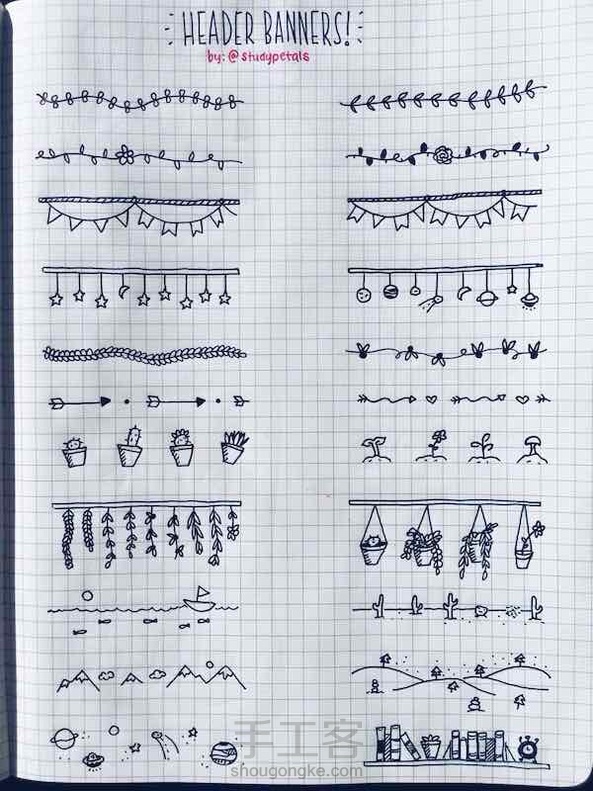 HEADER BANNERS!
by: @studypetals
手工客
shougongke.com